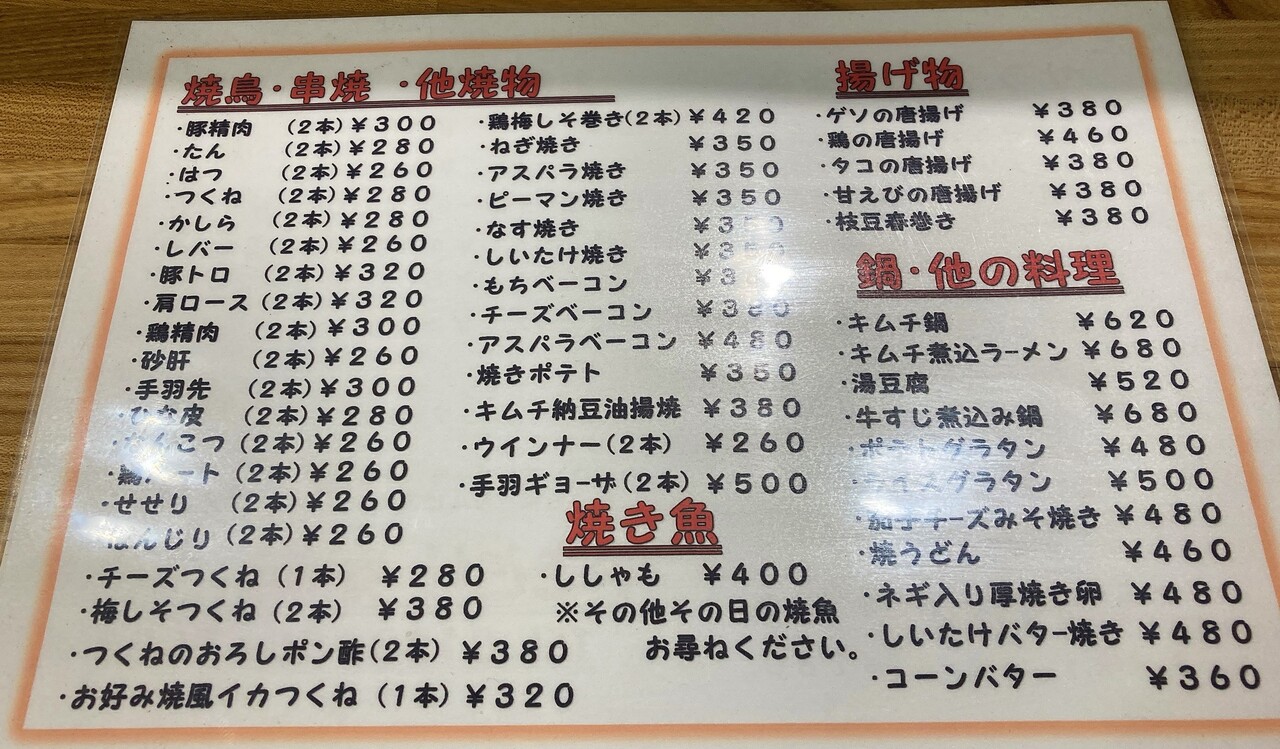 焼鳥・串焼 ・他焼物
・豚精肉 (2本)¥300
・たん (2本)¥280
・はつ (2本)¥260
・つくね (2本)¥280
・かしら (2本)¥280
・レバー (2本)¥260
・豚トロ (2本)¥320
・肩ロース (2本)¥320
・鶏精肉 (2本)¥300
・砂肝 (2本)¥260
・手羽先 (2本)¥300
・ひな皮 (2本)¥280
・なんこつ (2本)¥260
・鶏ハート (2本)¥260
・せせり (2本)¥260
・ぼんじり (2本)¥260
・チーズつくね (1本) ¥280
・梅しそつくね (2本) ¥380
・つくねのおろしポン酢(2本) ¥380
・お好み焼風イカつくね (1本) ¥320
・鶏梅しそ巻き(2本) ¥420
・ねぎ焼き ¥350
・アスパラ焼き ¥350
・ピーマン焼き ¥350
・なす焼き ¥350
・しいたけ焼き ¥350
・もちベーコン
・チーズベーコン ¥380
・アスパラベーコン ¥480
・焼きポテト ¥350
・キムチ納豆油揚焼 ¥380
・ウインナー(2本) ¥260
・手羽ギョーザ(2本) ¥500
焼き魚
・ししゃも ¥400
※その他その日の焼魚
お尋ねください。
揚げ物
・ゲソの唐揚げ ¥380
・鶏の唐揚げ ¥460
・タコの唐揚げ ¥380
・甘えびの唐揚げ ¥380
・枝豆春巻き ¥380
鍋・他の料理
・キムチ鍋 ¥620
・キムチ煮込ラーメン ¥680
・湯豆腐 ¥520
・牛すじ煮込み鍋 ¥680
・ポテトグラタン ¥480
・ライスグラタン ¥500
・茄子チーズみそ焼き ¥480
・焼うどん ¥460
・ネギ入り厚焼き卵 ¥480
・しいたけバター焼き ¥480
・コーンバター ¥360